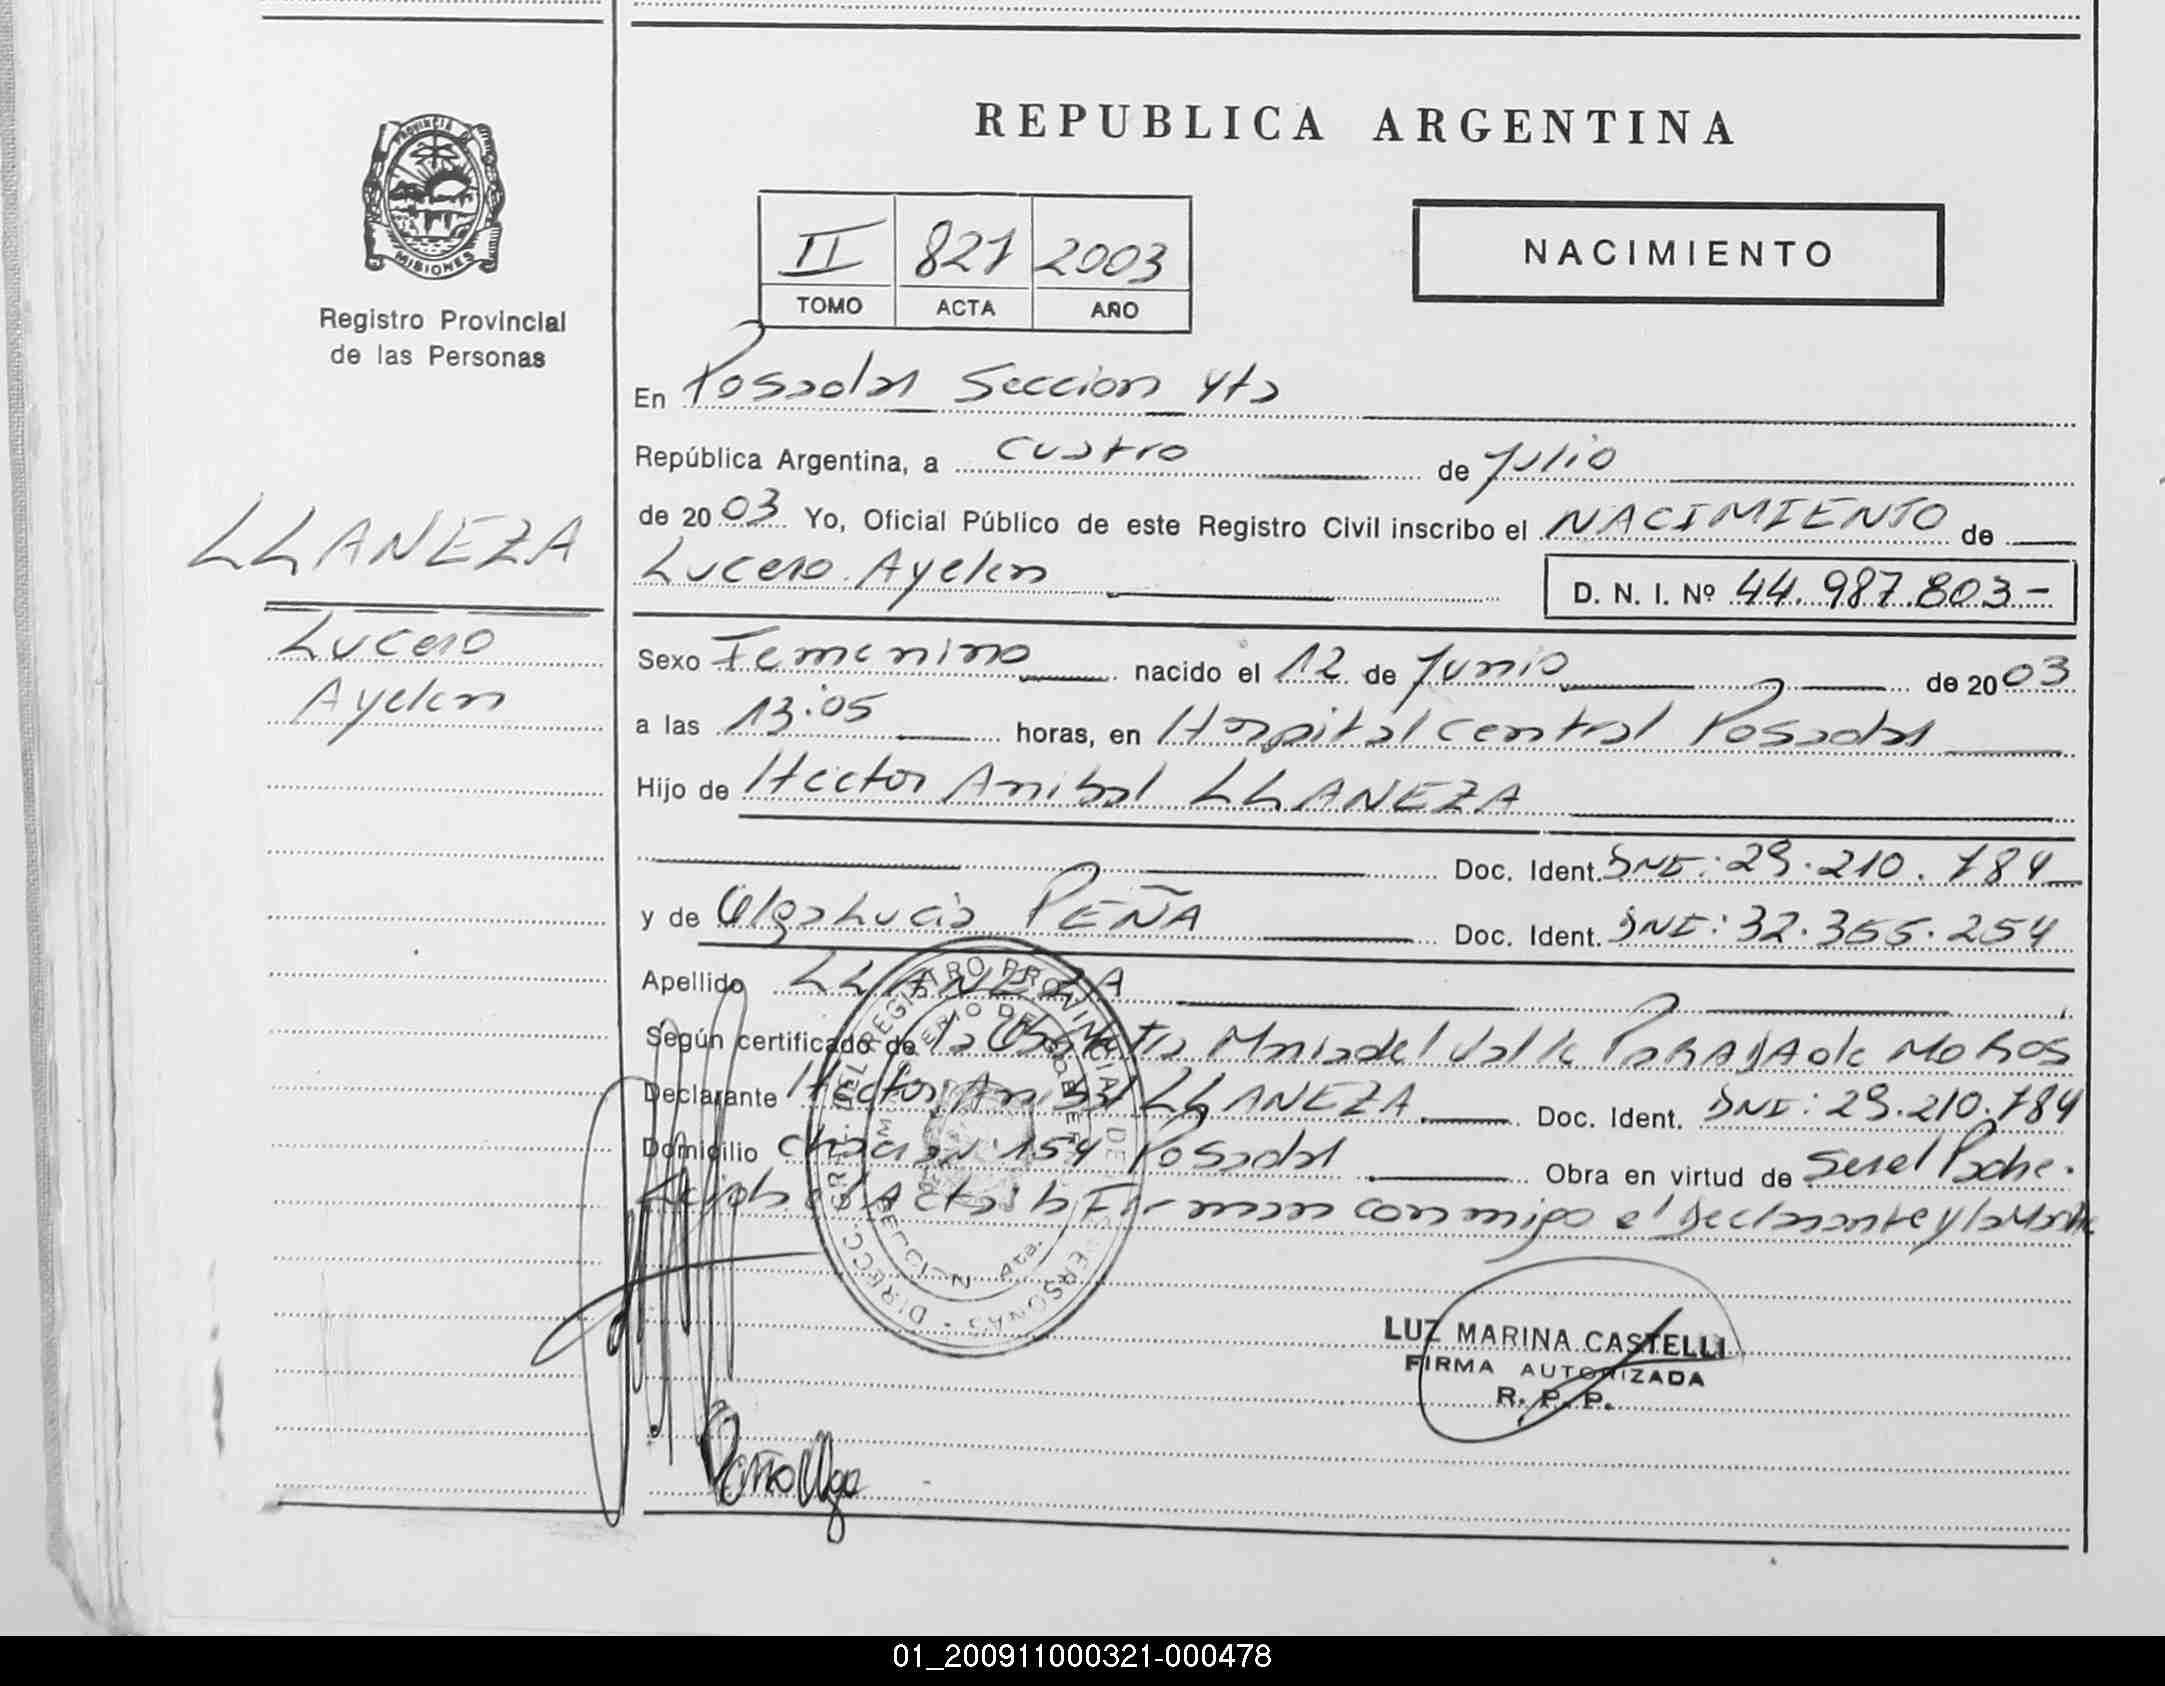 REPUBLICA ARGENTINA
PROVINCIA DE
MISIONES
Registro Provincial
de las Personas
II 821 2003
TOMO ACTA AÑO
NACIMIENTO
En Posadas Seccion 4ta
República Argentina, a cuatro de Julio
de 2003 Yo, Oficial Público de este Registro Civil inscribo el NACIMIENTO de
Lucero Ayelen D. N. I. Nº 44.987.803-
LLANEZA
Lucero
Ayelen
Sexo Femenino nacido el 12 de Junio de 2003
a las 13:05 horas, en Hospital Central Posadas
Hijo de Hector Anibal LLANEZA
Doc. Ident. DNI: 29.210.784
y de Olga Lucia PEÑA Doc. Ident. DNI: 32.365.254
Apellido LLANEZA
Según certificado de la Obstetra Maria del Valle PARAJA de MOROS
Declarante Hector Anibal LLANEZA Doc. Ident. DNI: 29.210.784
Domicilio 154 Posadas Obra en virtud de Ser el Padre.
Leida el Acta la Firman conmigo el Declarante y la Madre
DIRECC. GRAL. DEL REGISTRO PROVINCIAL DE LAS PERSONAS
MINISTERIO DE GOBIERNO
4ta.
LUZ MARINA CASTELLI
FIRMA AUTORIZADA
R. P. P.
Peña Olga
01_200911000321-000478